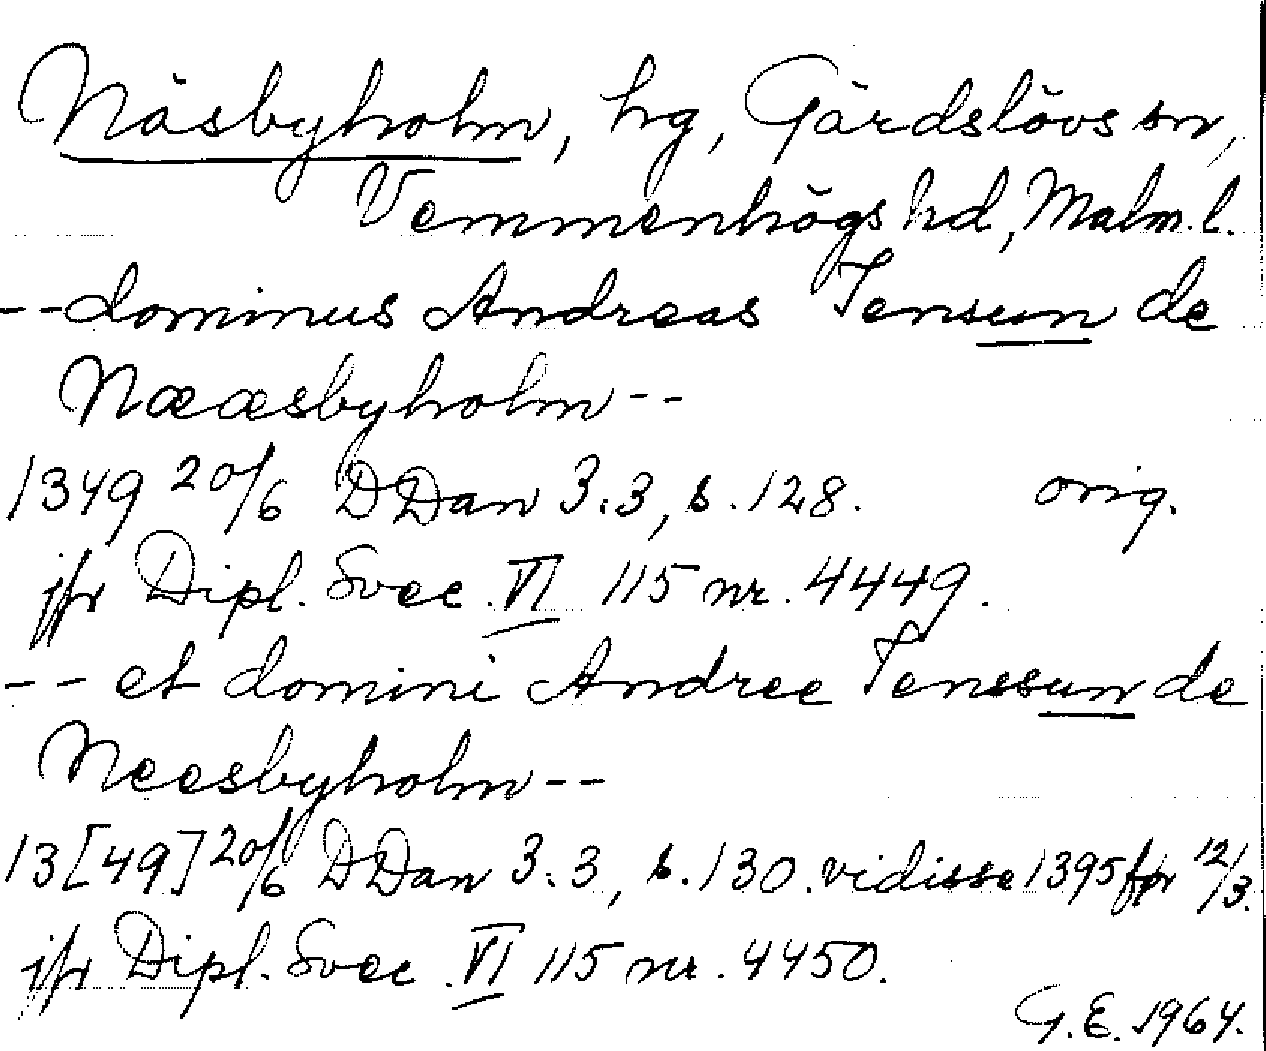 Näsbyholm, hg, Gärdslövs sn,
Vemmenhögs hd, Malm. l.
-- dominus Andreas Jensun de
Nææsbyholm --
1349 20/6 DDan 3:3, s. 128. orig.
jfr Dipl. Svec. VI 115 nr. 4449.
-- et domini Andree Jenssun de
Neesbyholm --
13[49] 20/6 DDan 3:3, s. 130. vidisse 1395 för 12/3.
jfr Dipl. Svec. VI 115 nr. 4450.
G.E. 1964.